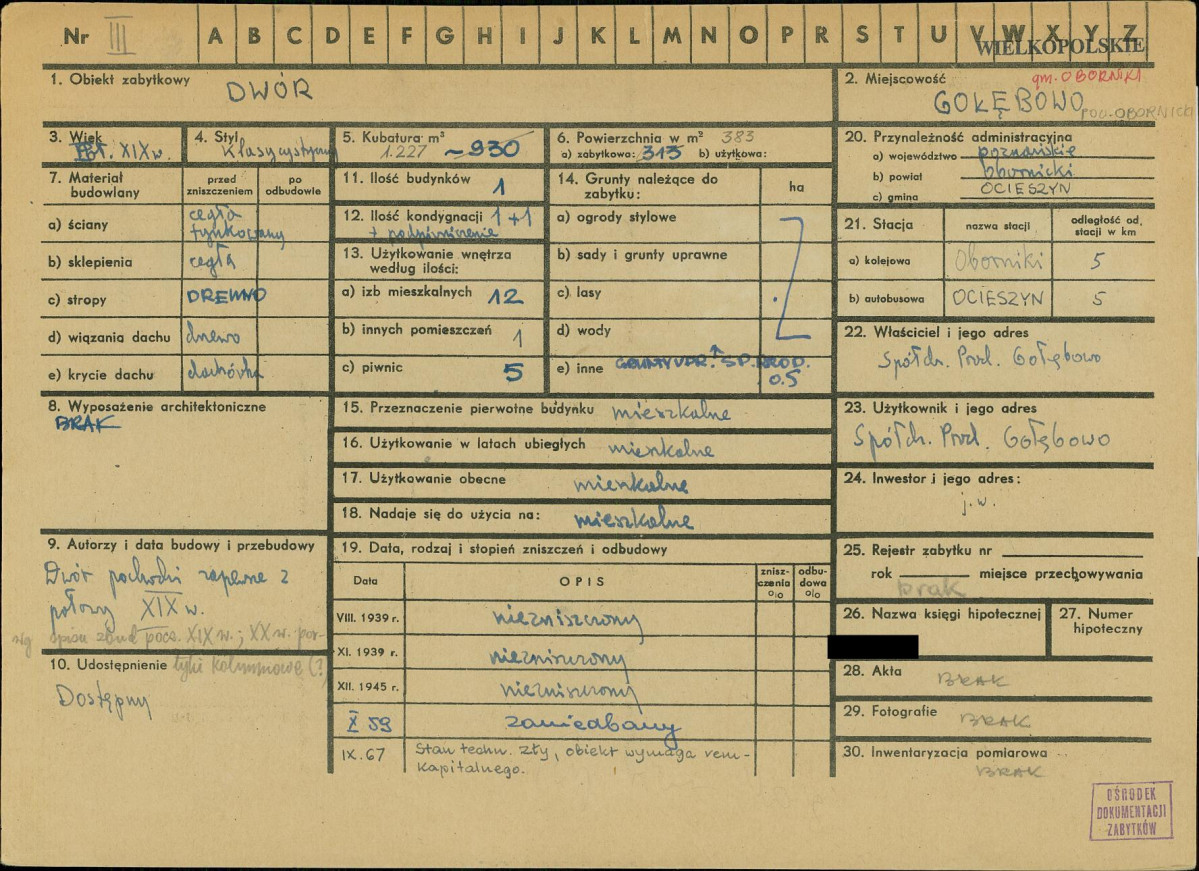 Nr III A B C D E F G H I J K L M N O P R S T U V W X Y Z
WIELKOPOLSKIE
1. Obiekt zabytkowy
DWÓR
2. Miejscowość
gm. OBORNIKI
GOŁĘBOWO
POW. OBORNICKI
3. Wiek
XIX w.
4. Styl
klasycystyczny
5. Kubatura m³
1.227 ~930
6. Powierzchnia w m² 383
a) zabytkowa: 313 b) użytkowa:
20. Przynależność administracyjna
a) województwo poznańskie
b) powiat Obornicki
c) gmina OCIESZYN
7. Materiał budowlany
przed zniszczeniem
po odbudowie
a) ściany
cegła
tynkowany
b) sklepienia cegła
c) stropy DREWNO
d) wiązania dachu drewno
e) krycie dachu dachówka
11. Ilość budynków 1
12. Ilość kondygnacji 1+1
+ podpiwniczenie
13. Użytkowanie wnętrza
według ilości:
a) izb mieszkalnych 12
b) innych pomieszczeń 1
c) piwnic 5
14. Grunty należące do
zabytku:
ha
a) ogrody stylowe
b) sady i grunty uprawne
c) lasy
d) wody
e) inne GRUNTY UPR. SP. PROD.
0.5
21. Stacja
nazwa stacji
odległość od.
stacji w km
a) kolejowa Oborniki 5
b) autobusowa OCIESZYN 5
22. Właściciel i jego adres
Spółdz. Prod. Gołębowo
8. Wyposażenie architektoniczne
BRAK
15. Przeznaczenie pierwotne budynku mieszkalne
16. Użytkowanie w latach ubiegłych mieszkalne
17. Użytkowanie obecne mieszkalne
18. Nadaje się do użycia na: mieszkalne
23. Użytkownik i jego adres
Spółdz. Prod. Gołębowo
24. Inwestor i jego adres:
j.w.
9. Autorzy i data budowy i przebudowy
Dwór pochodzi zapewne z
połowy XIX w.
wg spisu zbud. pocz. XIX w.; XX w. por-
tyki kolumnowe (?)
10. Udostępnienie
Dostępny
19. Data, rodzaj i stopień zniszczeń i odbudowy
Data
OPIS
znisz-
czenia
o/o
odbu-
dowa
o/o
VIII. 1939 r. niezniszczony
XI. 1939 r. niezniszczony
XII. 1945 r. niezniszczony
X 59 zaniedbany
IX. 67 Stan techn. zły, obiekt wymaga rem-
kapitalnego.
25. Rejestr zabytku nr
rok miejsce przechowywania
brak
26. Nazwa księgi hipotecznej
27. Numer
hipoteczny
28. Akta BRAK
29. Fotografie BRAK
30. Inwentaryzacja pomiarowa
BRAK
OŚRODEK
DOKUMENTACJI
ZABYTKÓW